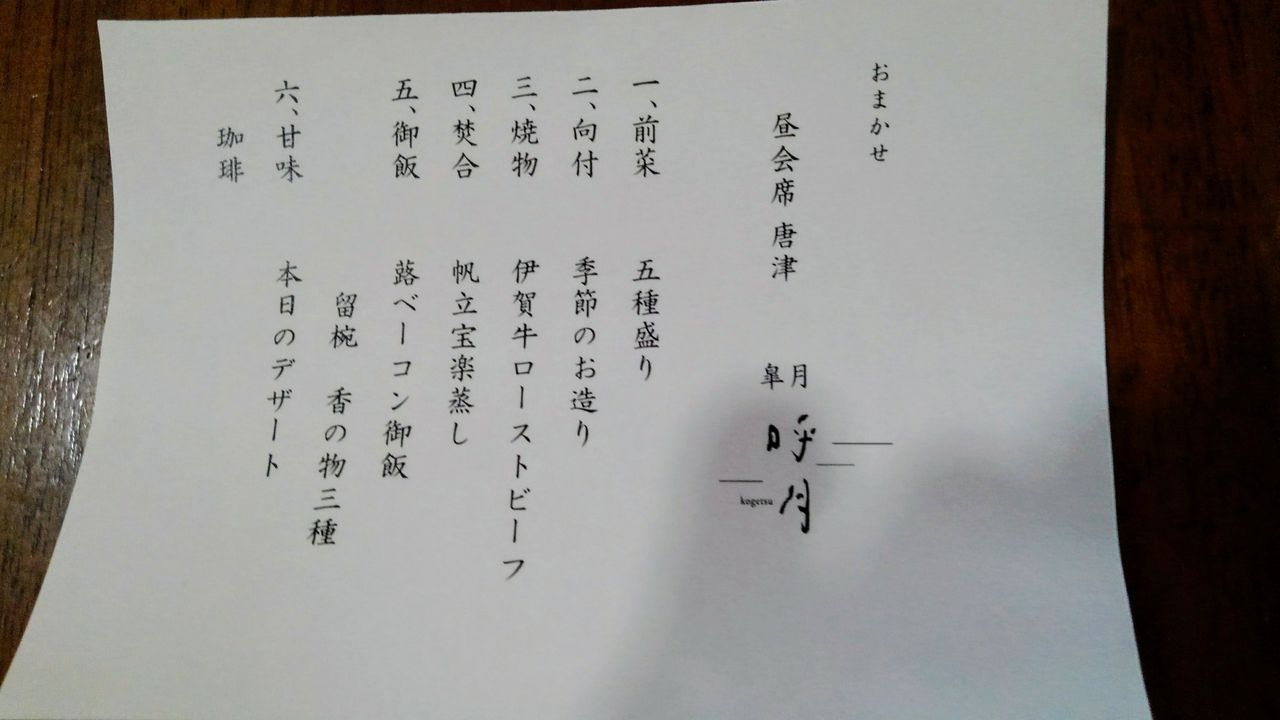 おまかせ
昼会席 唐津
皐月
呼月
kogetsu
一、前菜 五種盛り
二、向付 季節のお造り
三、焼物 伊賀牛ローストビーフ
四、焚合 帆立宝楽蒸し
五、御飯 蕗ベーコン御飯
留椀 香の物三種
六、甘味 本日のデザート
珈琲